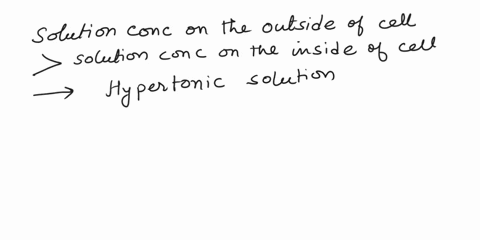 Solution conc on the outside of cell
> solution conc on the inside of cell
→ Hypertonic solution